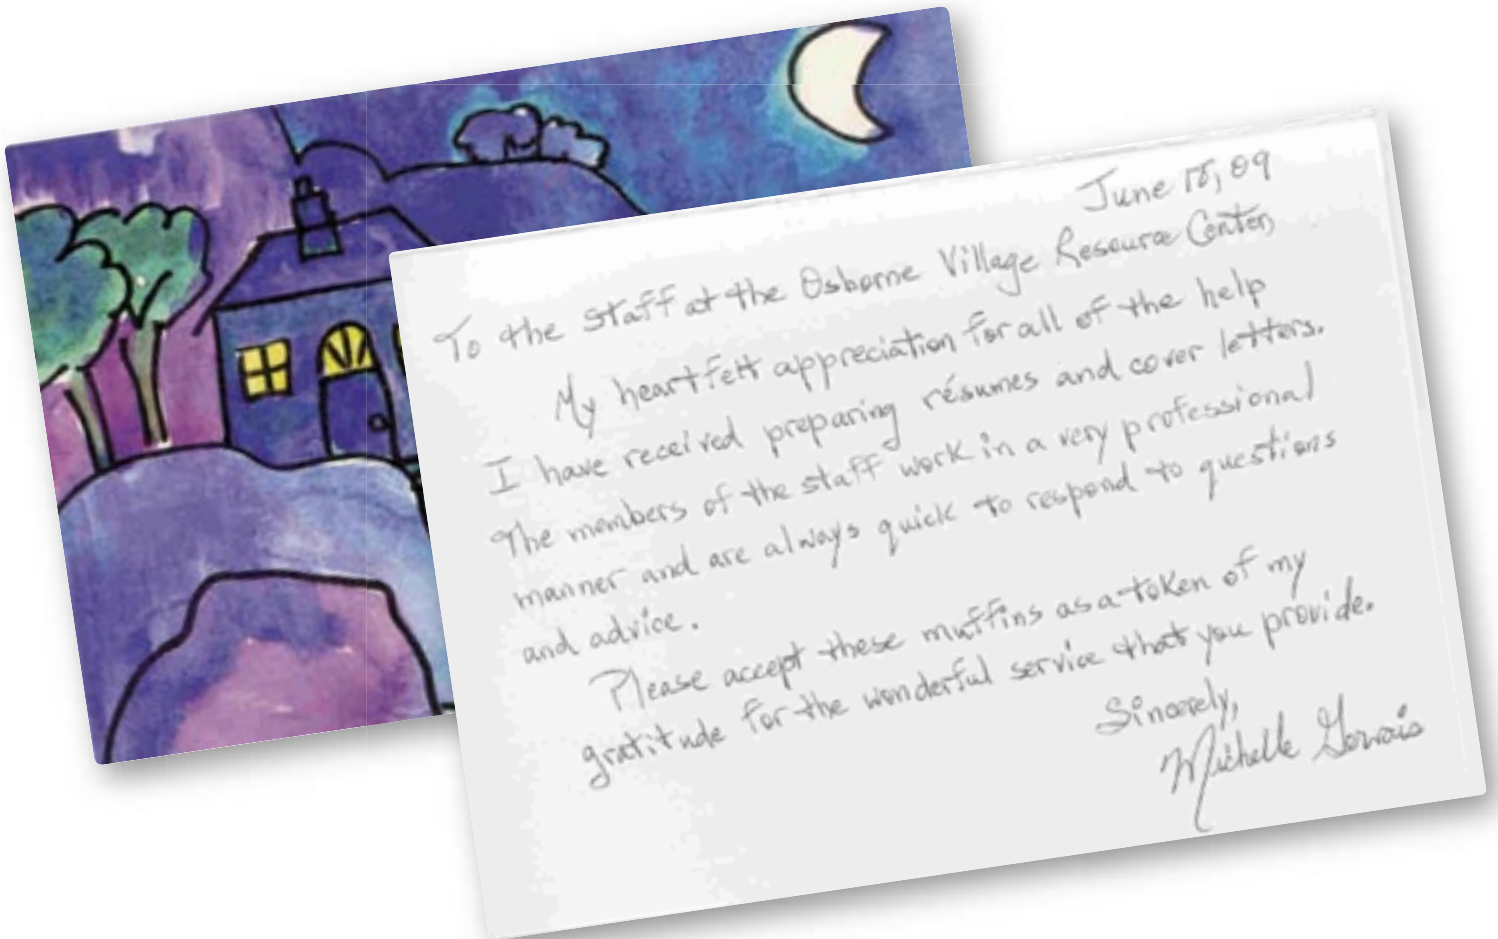 June 18, 09
To the staff at the Osborne Village Resource Center,
My heartfelt appreciation for all of the help
I have received preparing résumes and cover letters.
The members of the staff work in a very professional
manner and are always quick to respond to questions
and advice.
Please accept these muffins as a token of my
gratitude for the wonderful service that you provide.
Sincerely,
Michelle Gervais